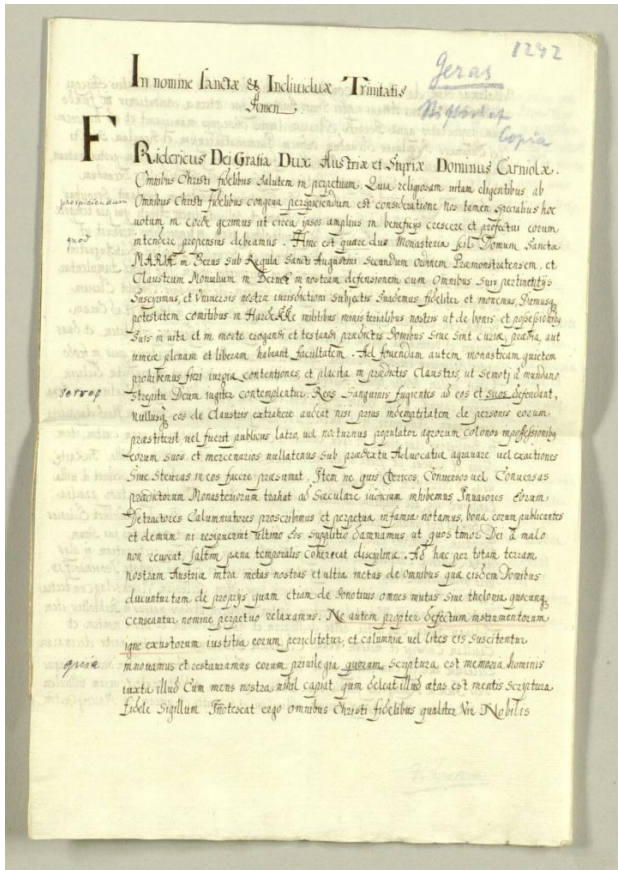 1242
Geras
Copia
In nomine Sanctæ & Individuæ Trinitatis
Amen.
FRidericus Dei Gratia Dux Austriæ et Styriæ Dominus Carniolæ.
Omnibus Christi fidelibus Salutem in perpetuum. Quia religiosam vitam eligentibus ab
prospiciendum
Omnibus Christi fidelibus congrua perspiciendum est consideratione nos tamen specialius hoc
votum in corde gerimus ut circa ipsos amplius in beneficijs crescere et profectus eorum
quod
intendere propensius debeamus. Hinc est quare duo Monasteria scil: Domum Sanctæ
MARIÆ in Geras sub Regula Sancti Augustini Secundum ordinem Præmonstratensem, et
Claustrum Monialium in Bernek in nostram defensionem cum Omnibus Suis pertinentijs
Suscepimus, et Universis nostræ iurisdictioni subjectis Suademus fideliter et monemus, Domusq
potestatem comitibus in Hardekke militibus ministerialibus nostris ut de bonis et possessionibus
Suis in vita et in morte erogandi et testandi prædictis Domibus sive sint curiæ, prædia, aut
vineæ plenam et liberam habeant facultatem. Ad fovendam autem monasticam quietem
prohibemus fieri iurgia contentiones, et placita in prædictis Claustris, ut semoti a mundano
strepitu Deum iugiter contemplentur. Reos Sanguinis fugientes ad eos et suos defendant,
servos
Nullusq eos de Claustris extrahere audeat nisi prius indemnitatem de personis eorum
præstiterit vel fuerit publicus latro, vel nocturnus populator agrorum colonos in possessionibus
eorum suos et mercenarios nullatenus sub prætextu Advocatiæ agravare vel exactiones
Sive Steuras in eos facere præsumat. Item ne quis Clericos, Conversos vel Conversas
prædictorum Monasteriorum trahat ad Sæculare iudicium inhibemus Invasores Eorum
Detractores Calumniatores proscribimus et perpetua infamia notamus, bona eorum publicantes
et demum ni resipuerint ultimo eos supplitio damnamus ut quos timor Dei à malo
non revocat saltim pæna temporalis coherceat disciplinæ. Ad hæc per totam terram,
nostram Austriæ intra metas nostras et ultra metas de omnibus quæ eisdem Domibus
ducuntur tam de proprijs quam etiam de donativis omnes mutas sive thelonia quocunq
censeantur nomine perpetuo relaxamus. Ne autem propter defectum instrumentorum
igne exustorum iustitia eorum periclitetur, et calumniæ vel lites eis suscitentur
innovamus et restauramus eorum privilegia quorum Scriptura est memoria hominis
quia
iuxta illud Cum mens nostra nihil capiat qum deleat illud ætas est mentis Scriptura
fidele Sigillum Inotescat ergo omnibus Christi fidelibus qualiter Vir Nobilis